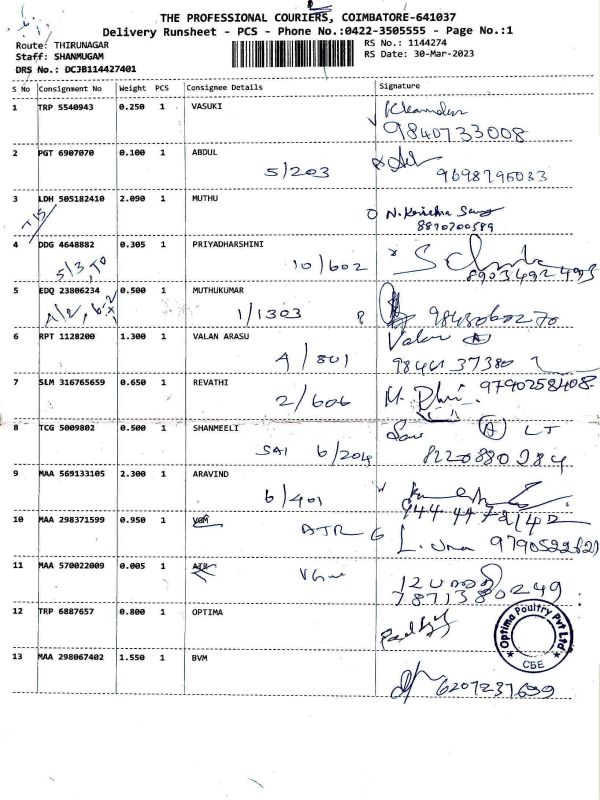 THE PROFESSIONAL COURIERS, COIMBATORE-641037
Delivery Runsheet - PCS - Phone No.:0422-3505555 - Page No.:1
Route: THIRUNAGAR
RS No.: 1144274
Staff: SHANMUGAM
RS Date: 30-Mar-2023
DRS No.: DCJB114427401
S No Consignment No Weight PCS Consignee Details Signature
1 TRP 5540943 0.250 1 VASUKI
9840733008
2 PGT 6907070 0.100 1 ABDUL
5/203
9698796033
3 LDH 505182410 2.090 1 MUTHU
8870700589
4 DDG 4648882 0.305 1 PRIYADHARSHINI
10/602
8903492493
5 EDQ 23806234 0.500 1 MUTHUKUMAR
1/1303
6 RPT 1128200 1.300 1 VALAN ARASU
Valan A
4/801
7 SLM 316765659 0.650 1 REVATHI
9790258408
2/606
8 TCG 5009802 0.500 1 SHANMEELI
A LT
SAI 6/204
8220880284
9 MAA 569133105 2.300 1 ARAVIND
6/401
10 MAA 298371599 0.950 1 VGM
ATR G
L. Uma
11 MAA 570022009 0.005 1 ATR
VGM
7871380249
12 TRP 6887657 0.800 1 OPTIMA
Optima Poultry Pvt Ltd
CBE
13 MAA 298067402 1.550 1 BVM
6207237699